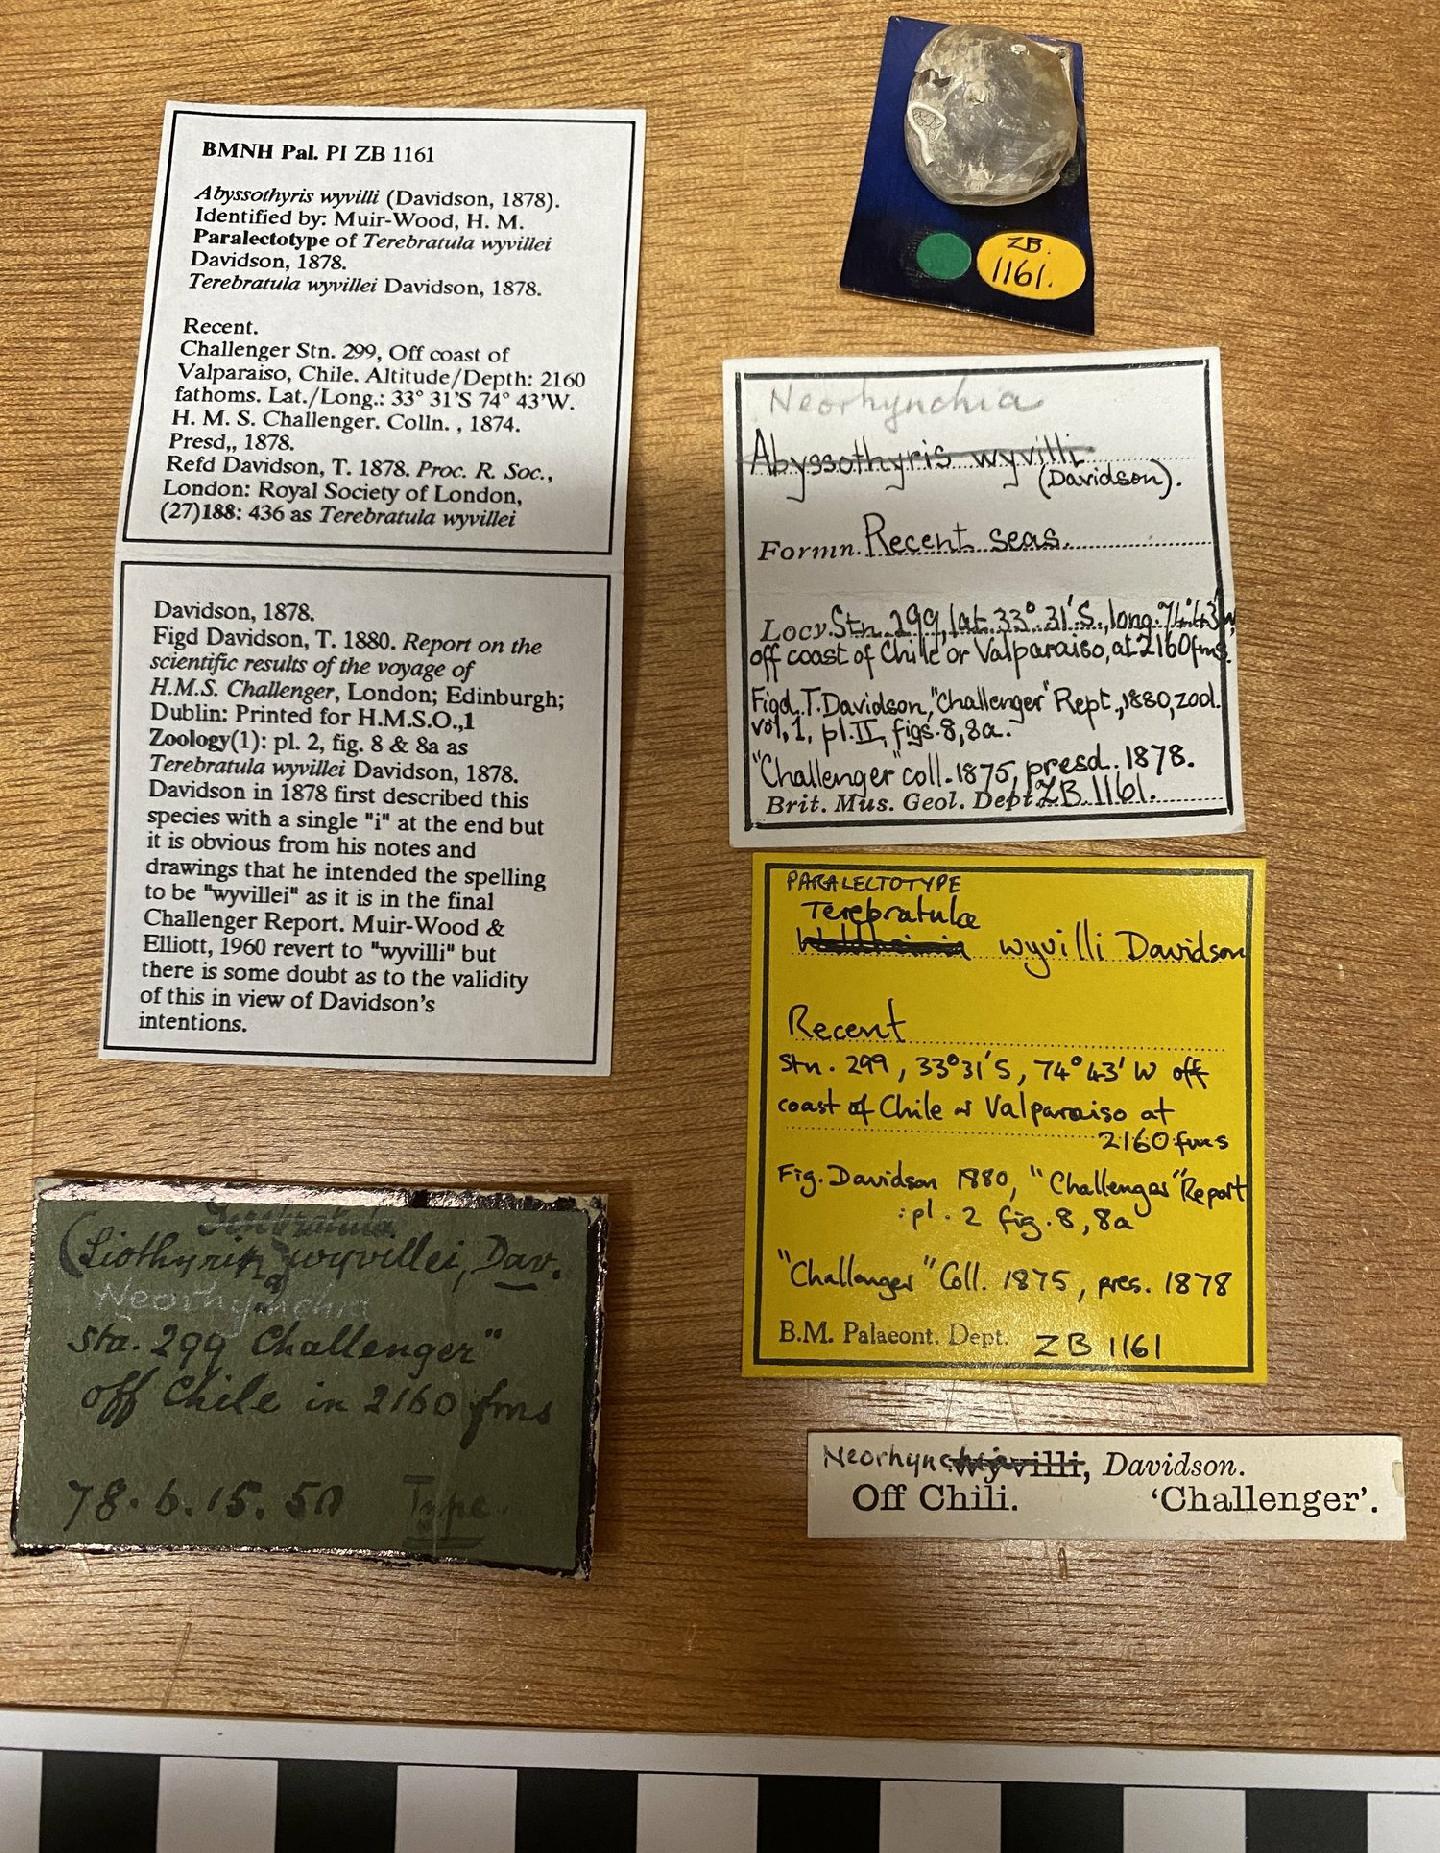 BMNH Pal. PI ZB 1161
Abyssothyris wyvilli (Davidson, 1878).
Identified by: Muir-Wood, H. M.
Paralectotype of Terebratula wyvillei
Davidson, 1878.
Terebratula wyvillei Davidson, 1878.
Recent.
Challenger Stn. 299, Off coast of
Valparaiso, Chile. Altitude/Depth: 2160
fathoms. Lat./Long.: 33° 31'S 74° 43'W.
H. M. S. Challenger. Colln. , 1874.
Presd,, 1878.
Refd Davidson, T. 1878. Proc. R. Soc.,
London: Royal Society of London,
(27)188: 436 as Terebratula wyvillei
Davidson, 1878.
Figd Davidson, T. 1880. Report on the
scientific results of the voyage of
H.M.S. Challenger, London; Edinburgh;
Dublin: Printed for H.M.S.O.,1
Zoology(1): pl. 2, fig. 8 & 8a as
Terebratula wyvillei Davidson, 1878.
Davidson in 1878 first described this
species with a single "i" at the end but
it is obvious from his notes and
drawings that he intended the spelling
to be "wyvillei" as it is in the final
Challenger Report. Muir-Wood &
Elliott, 1960 revert to "wyvilli" but
there is some doubt as to the validity
of this in view of Davidson's
intentions.
ZB.
1161.
Neorhynchia
Abyssothyris wyvilli
(Davidson).
Formn. Recent seas.
Locy. Stn. 299, lat. 33° 31'S., long. 74° 43'W,
off coast of Chile or Valparaiso, at 2160 fms.
Figd. T. Davidson, "Challenger" Rept., 1880, zool.
vol, 1, pl. II, figs. 8, 8a.
"Challenger" coll. 1875, presd. 1878.
Brit. Mus. Geol. Dept. ZB. 1161.
PARALECTOTYPE
Terebratula
Waldheimia wyvilli Davidson
Recent
Stn. 299, 33°31'S, 74°43'W off
coast of Chile or Valparaiso at
2160 fms
Fig. Davidson 1880, "Challenger" Report
: pl. 2 fig. 8, 8a
"Challenger" Coll. 1875, pres. 1878
B.M. Palaeont. Dept. ZB 1161
Terebratula
(Liothyrina) wyvillei, Dav.
Neorhynchia
Sta. 299 Challenger"
off Chile in 2160 fms
78.6.15.50 Type
Neorhynchia wyvilli, Davidson.
Off Chili. 'Challenger'.